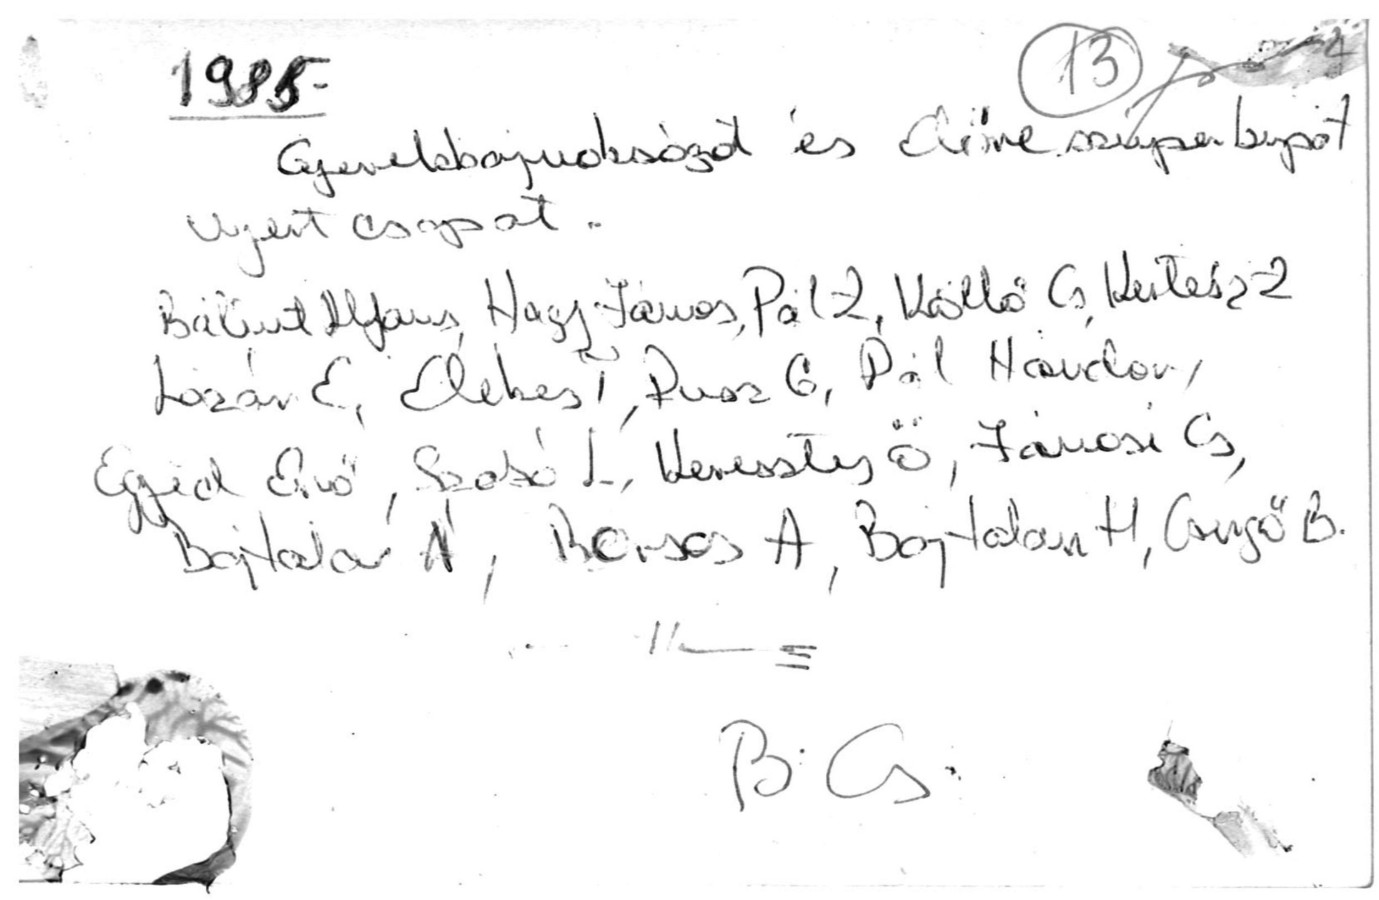 1985
13
Gyerekbajnokságot és Cîrne szuperkupát
nyert csapat.
Bálint Alfons, Nagy János, Pál Z, Kálló Cs, Kertész Z
Lázár E, Elekes T, Rusz G, Pál Nándor,
Egyed Ernő, Szabó L, Keresztes Ö, Jánosi Cs,
Bajtalan A, Borsos A, Bajtalan H, Csergő B.
B. Cs.